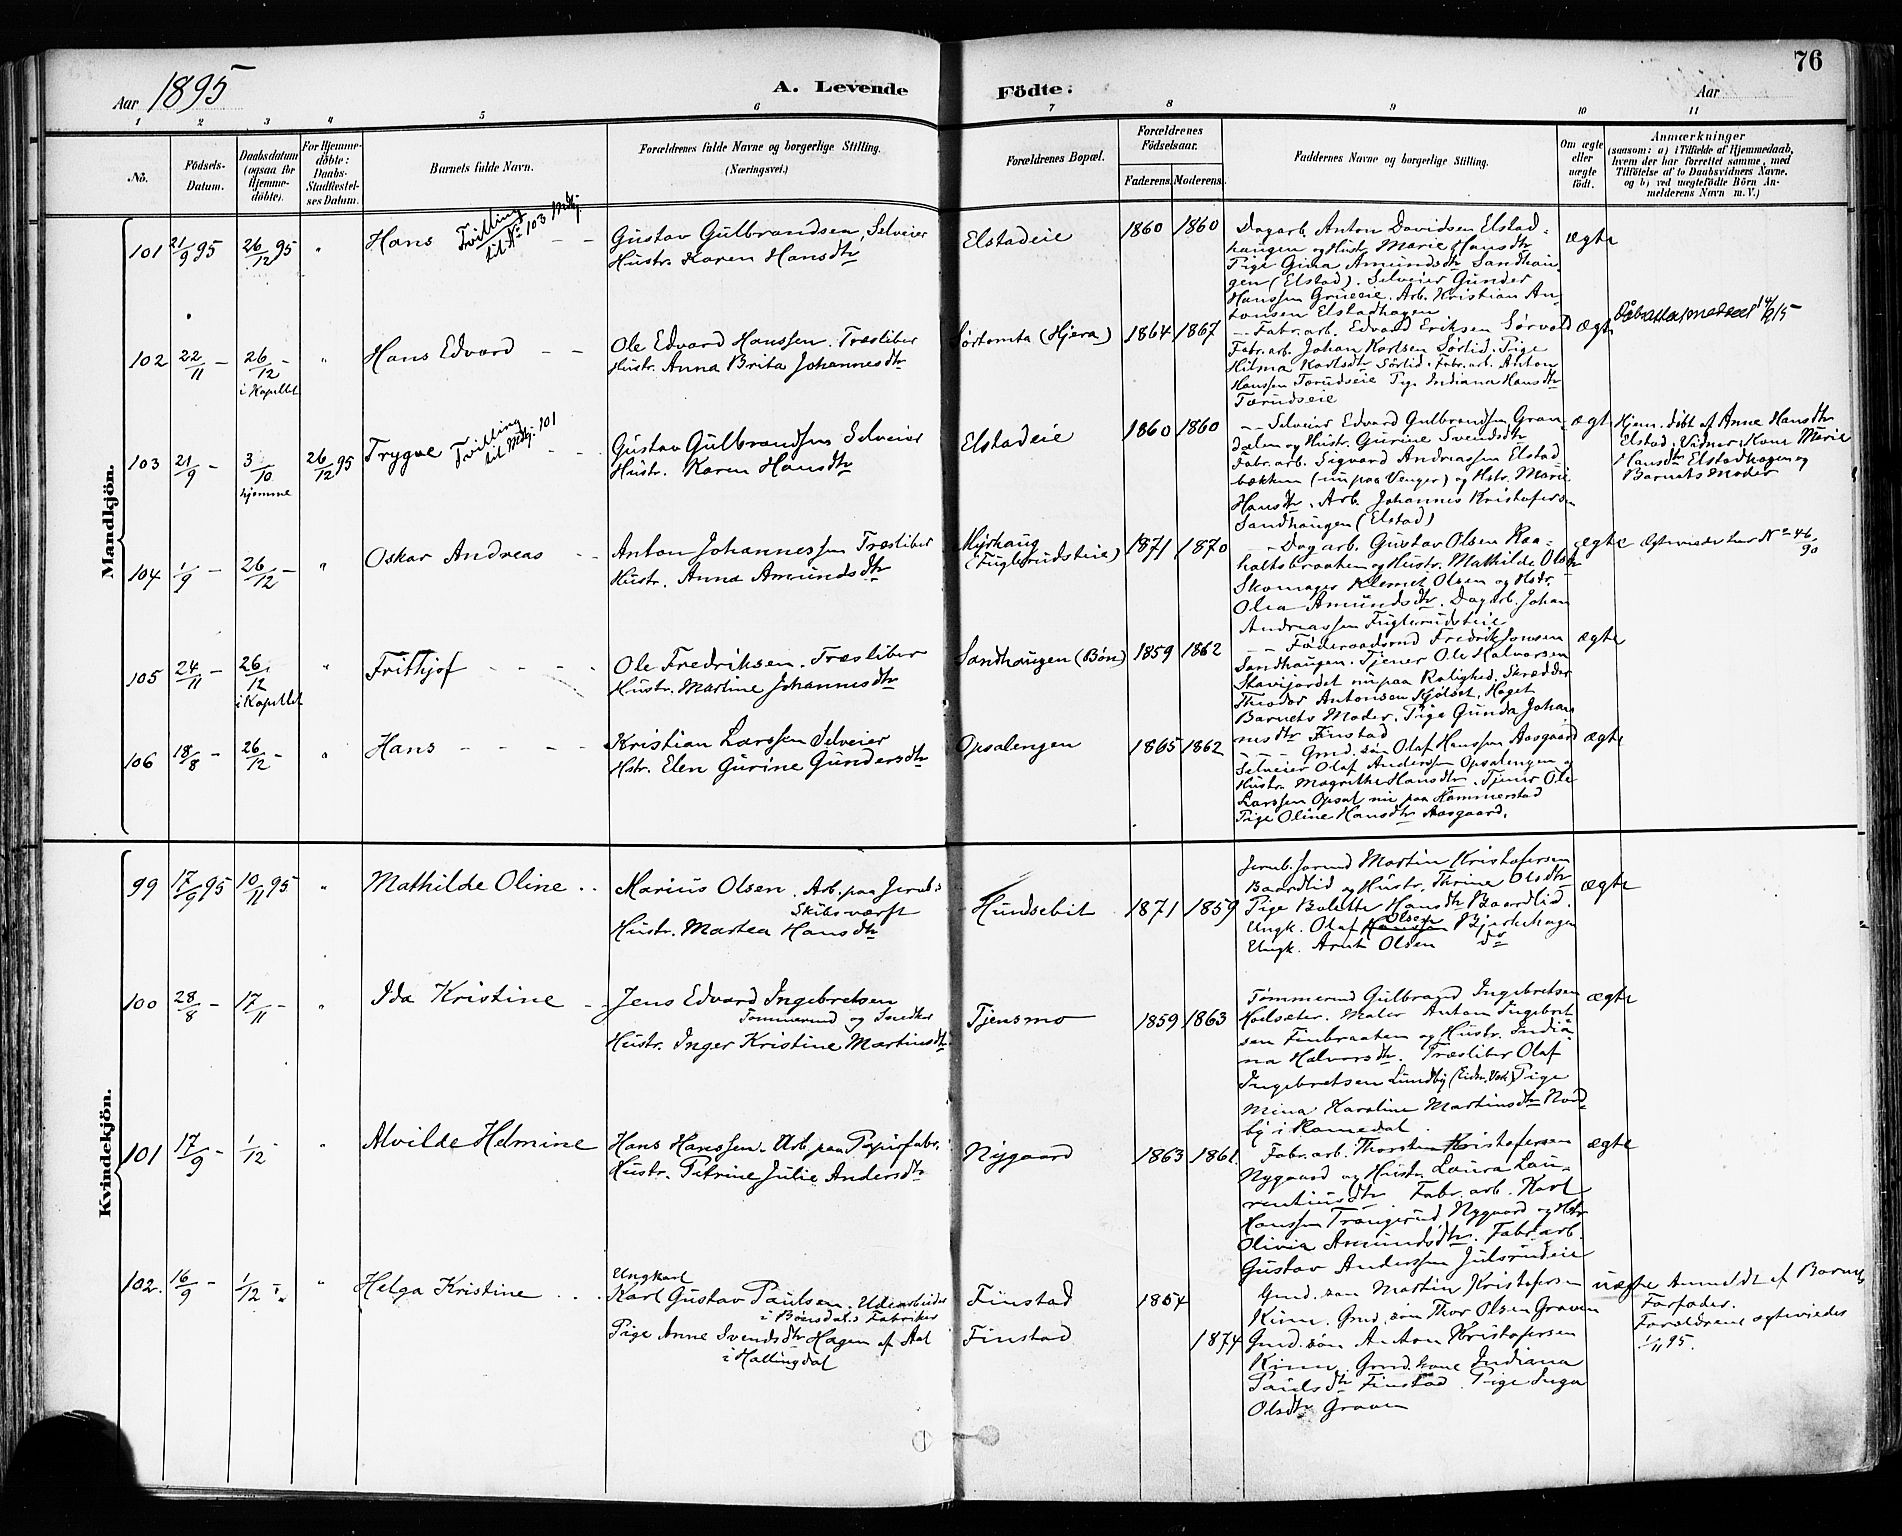 76
Aar 1895
A. Levende Födte.
Aar
1 2 3 4 5 6 7 8 9 10 11
No.
Födsels-
Datum.
Daabsdatum
(ogsaa for
Hjemme-
döbte).
For Hjemme-
döbte:
Daabs-
Stadfæstel-
ses Datum.
Barnets fulde Navn.
Forældrenes fulde Navne og borgerlige Stilling.
(Næringsvei.)
Forældrenes Bopæl.
Forældrenes
Födselsaar.
Faderens. Moderens.
Faddernes Navne og borgerlige Stilling.
Om ægte
eller
uægte
födt.
Anmærkninger
(saasom: a) i Tilfælde af Hjemmedaab,
hvem der har forrettet samme, med
Tilföielse af to Daabsvidners Navne,
og b) ved uægtefödte Börn An-
melderens Navn m. V.)
Mandkjön.
101 21/9 95 26/12 95 " Hans Tvilling
til No 103 Mdkj
Gustav Gulbrandsen, Selveier
Hustr. Karen Hansdtr
Elstadeie 1860 1860
Dagarb. Anton Davidsen Elstad-
haugen og Hustr. Marie Hansdtr
Pige Gina Amundsdtr Sandhau-
gen (Elstad). Selveier Gunder
Hanssen Grueeie. Arb. Kristian An-
tonsen Elstadhagen
ægte
102 22/11 - 26/12 - " Hans Edvard
i Kapellet
Ole Edvard Hanssen. Træsliber
Hustr. Anna Brita Johannesdtr
Sörtomta (Hjera) 1864 1867
Fabr. arb. Edvard Eriksen Sörvold
Fabr. arb. Johan Karlsen Sörlid. Pige
Hilma Karlsdtr Sörlid. Fabr. arb. Anton
Hanssen Tærudseie Pige Indiana Hansdtr
Tærudseie
ægte
103 21/9 - 3/10 hjemme 26/12 95 Trygve Tvilling
til Mdkj. 101
Gustav Gulbrandsen Selveier
Hustr. Karen Hansdtr
Elstadeie 1860 1860
Selveier Edvard Gulbrandsen Gran-
dalen og Hustr. Gurine Svendsdtr
Fabr. arb. Sigvard Andreassen Elstad-
bækken (nu paa Venger) og Hstr. Marie
Hansdtr. Arb. Johannes Kristofersen
Sandhaugen (Elstad)
ægte
Hjem. döbt af Anne Hansdtr
Elstad. Vidner, Kone Marie
Hansdtr Elstadhagen og
Barnets Moder
104 1/9 - 26/12 - " Oskar Andreas
Anton Johannessen Træsliber
Hustr. Anna Amundsdtr
Myrhaug
(Fuglerudseie) 1871 1870
Dagarb. Gustav Olsen Raa-
holtsbraaten og Hustr. Mathilde Olsdtr
Skomager Klemet Olsen og Hstr.
Olea Amundsdtr. Dagarb. Johan
Andreassen Fuglerudseie
ægte
Ægteviede her No 46/90
105 24/11 - 26/12 " Frithjof
i Kapellet
Ole Fredriksen. Træsliber
Hustr. Martine Johannesdtr
Sandhaugen (Bön) 1859 1862
Föderaadsmd Fredrik Jonsen
Sandhaugen. Tjener Ole Halvorsen
Stavijordet nu paa Rolighed. Skrædder
Theodor Antonsen Kjölset. Höget
Barnets Moder. Pige Gunda Johan-
nesdtr Finstad
ægte
106 18/8 - 26/12 - " Hans
Kristian Larssen Selveier
Hstr. Elen Gurine Gundersdtr
Opsalengen 1865 1862
Gmd. sön Olaf Hanssen Aasgaard
Selveier Olaf Anderssen Opsalengen og
Hustr. Magrethe Hansdtr. Tjener Ole
Larssen Opsal nu paa Hammerstad
Pige Oline Hansdtr Aasgaard.
ægte
Kvindekjön.
99 17/9 95 10/11 95 " Mathilde Oline
Marius Olsen. Arb. paa Jernb.s
Skibsværft
Hustr. Martea Hansdtr
Hundsebit 1871 1859
Jernb. formd Martin Kristofersen
Baardlid og Hustr. Thrine Olsdtr
Pige Bolette Hansdtr Baardlid.
Ungk. Olaf Hanssen Olsen Bjerkehagen
Ungk. Arnt Olsen do
ægte
100 28/8 - 17/11 - " Ida Kristine
Jens Edvard Ingebretsen
Tömmermd og Snedker
Hustr. Inger Kristine Martinsdtr
Tjensmo 1859 1863
Tömmermd Gulbrand Ingebretsen
Hoelsæter. Maler Anton Ingebret-
sen Finbraaten og Hustr. India-
na Halvorsdtr. Træsliber Olaf
Ingebretsen Lundby (Eidsv. Verk) Pige
Mina Karoline Martinsdtr Nord-
by i Romedal.
ægte
101 17/9 - 1/12 - " Alvilde Helmine
Hans Hanssen. Arb. paa Papirfabr.
Hustr. Petrine Julie Andersdtr
Nygaard 1863 1861
Fabr. arb. Thorsten Kristofersen
Nygaard og Hustr. Laura Lau-
rentiusdtr. Fabr. arb. Karl
Hanssen Trangerud Nygaard og Hstr
Olivia Amundsdtr. Fabr. arb.
Gustav Anderssen Julsrudeie
ægte
102. 16/9 - 1/12 " Helga Kristine
Ungkarl
Karl Gustav Paulsen. Udearbeider
i Bönsdal.s Fabriker
Pige Anne Svendsdtr Hagen af Aal
i Hallingdal
Finstad 1854
Finstad 1874
Gmd. sön Martin Kristofersen
Kinn. Gmd. sön Thor Olsen Graven
Gmd. sön Anton Kristofersen
Kinn. Gmd. kone Indiana
Paulsdtr Finstad. Pige Inga
Olsdtr Graven
uægte
Anmeldt af Barnets
Farfader.
Forældrene ægteviedes
1/11 95.